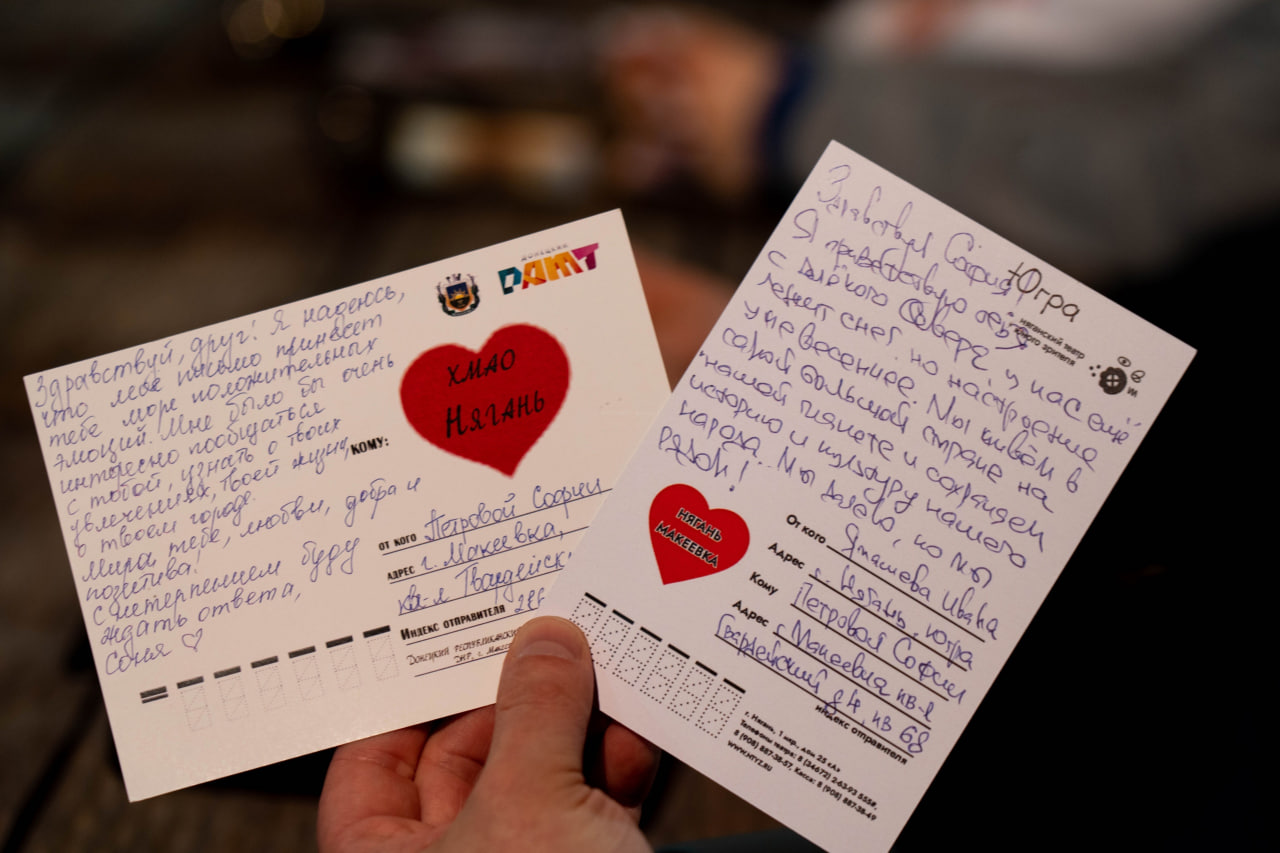 Здравствуй, друг! Я надеюсь,
что моё письмо принесёт
тебе море положительных
эмоций. Мне было бы очень
интересно пообщаться
с тобой, узнать о твоих
увлечениях, твоей жизни,
в твоем городе.
Мира тебе, любви, добра и
позитива!
С нетерпением буду
ждать ответа,
Соня ♡
ДОНЕЦКИЙ
РАМТ
ХМАО
НЯГАНЬ
КОМУ:
ОТ КОГО Петровой Софии
АДРЕС г. Макеевка,
кв-л Гвардейск
Индекс отправителя 286
ДОНЕЦКИЙ РЕСПУБЛИКАНСКИЙ
ДНР, г. Макее
Здравствуй София!
Я приветствую тебя
с далёкого Севера у нас ещё
лежит снег, но настроение
уже весеннее. Мы живём в
самой большой стране на
нашей планете и сохраняем
историю и культуру нашего
народа. Мы далеко, но мы
рядом!
Югра
няганский театр
юного зрителя
НЯГАНЬ
МАКЕЕВКА
От кого Яташева Ивана
Адрес г. Нягань, Югра
Кому Петровой Софии
Адрес г. Макеевка кв-л
Гвардейский д 4, кв 68
индекс отправителя
г. Нягань, 1 мкр., дом 25 «А»
Телефоны театра: 8 (34672) 2-63-93 555#,
8 (908) 887-38-57, Касса: 8 (908) 887-38-49
WWW.NTYZ.RU